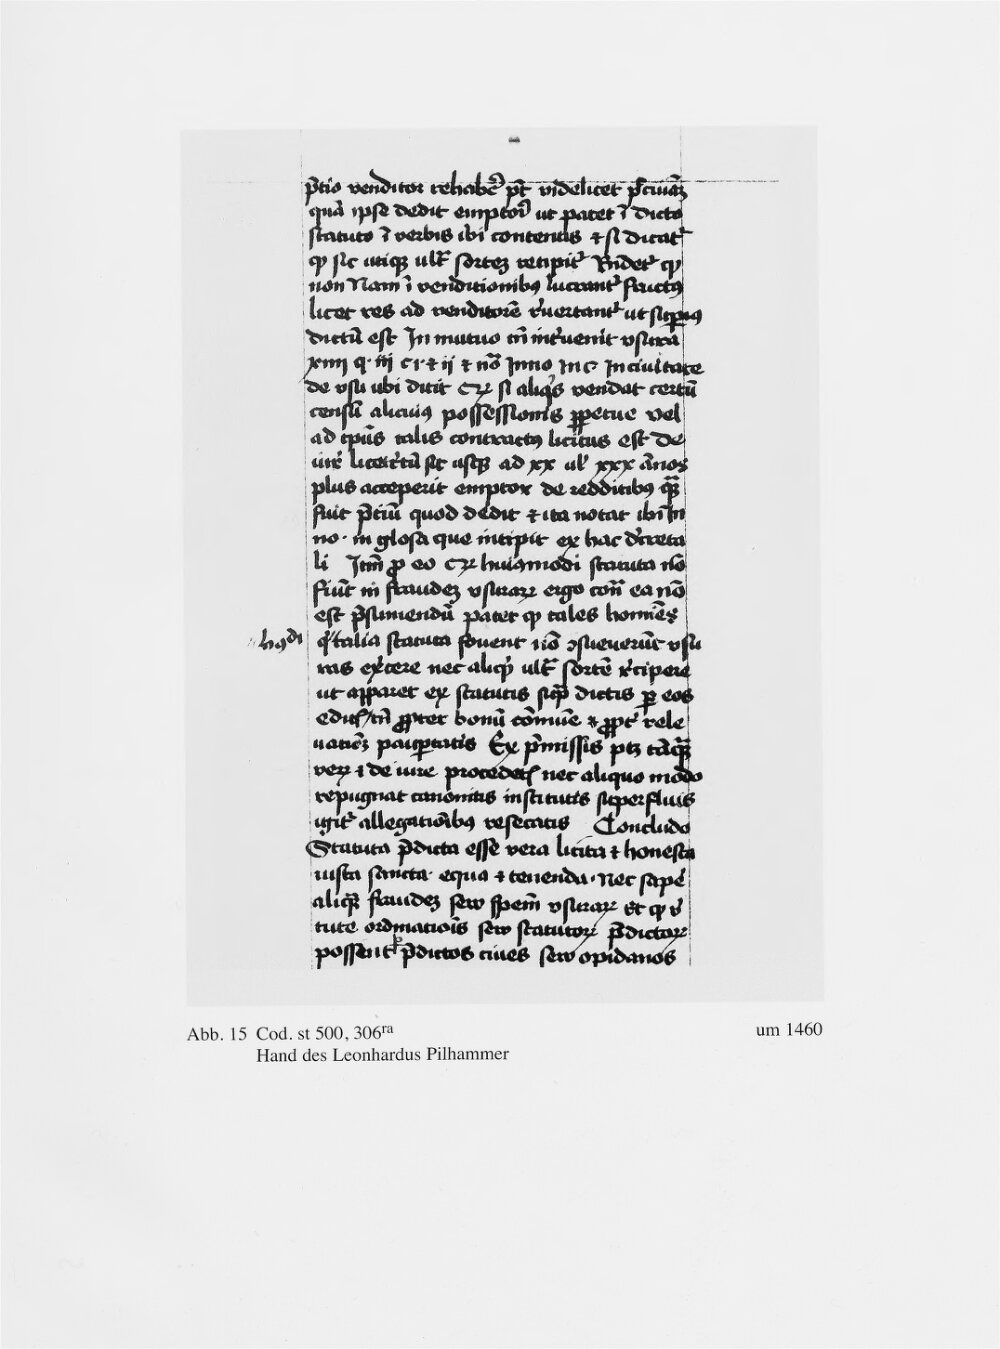 p̄tio venditor rehab̄e᷒ pt̄ videlicet
quā ipse dedit emptori ut patet ī dicto
statuto ī verbis ibi contentis ⁊ si dicat᷒
ꝙ sic utiqꝫ ult᷒ sortez recipit᷒ Rn̄det᷒ ꝙ
non Nam ī venditionibꝰ lucrant᷒ fructꝰ
licet res ad venditorē rͤvertant᷒ ut supiꝰ
dictū est In mutuo tn̄ int᷒venit usura
xiiij q. iij c r ⁊ ij ⁊ nō Inno in c In civitate
de usu ubi dicit ꝙ si aliqͥs vendat certū
censū alicuiꝰ possessionis ꝑpetue vel
ad tp̄us talis contractꝰ licitus est de
iur᷒ sic usqꝫ ad xx ul᷒ xxx ānos
plus acceperit emptor de redditibꝰ qͣꝫ
fuit p̄tiū quod dedit ⁊ ita notat ibi In
no. in glosa que incipit ex hac dc̄reta
li Itm̄ ꝓ eo huiꝰmodi statuta nō
fiūt in fraudez usurarꝝ ergo ea nō
est p̄sumendū patet ꝙ tales homīes
hꝰdi qͥ talia statuta fovent nō ↄsueverūt usu
ras ex᷒cere nec aliqͥ ult᷒ sortē r᷒cipere
ut apparet ex statutis sup̄ dictis ꝑ eos
edit᷒ tn̄ ꝓpter bonū cōmūe ⁊ ꝓpt᷒ rele
vatiōꝫ pauꝑtatis Ex p̄missis ptꝫ
verꝝ ⁊ de iure procedet᷒ nec aliquo modo
repugnat canonitis institutis superfluis
igit᷒ allegatiōibus resecatis Concludo
Statuta p̄dicta esse vera licita ⁊ honesta
iusta sancta. equa ⁊ tenenda. Nec sapē
aliqͣꝫ fraudez sew spem̄ usurarꝝ Et ꝙ v᷒
tute ordinatiōis sew statutorꝝ p̄dictorꝝ
possent p̄dictos cives sew opidanos
Abb. 15 Cod. st 500, 306ra um 1460
Hand des Leonhardus Pilhammer